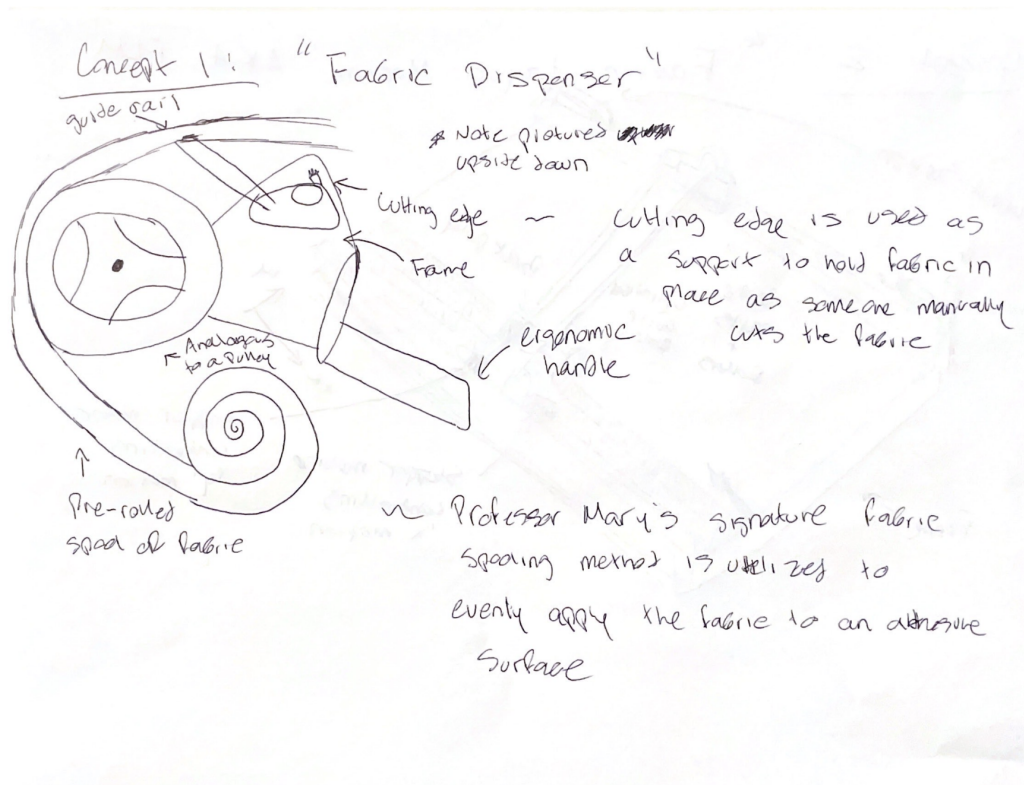 Concept 1: "Fabric Dispenser"
guide rail
* Note pictured
upside down
Cutting edge ~ Cutting edge is used as
a support to hold fabric in
place as someone manually
cuts the fabric
Frame
ergonomic
handle
Analogous
to a pulley
Pre-rolled
spool of fabric
~ Professor Mary's signature fabric
spooling method is utilized to
evenly apply the fabric to an adhesive
surface